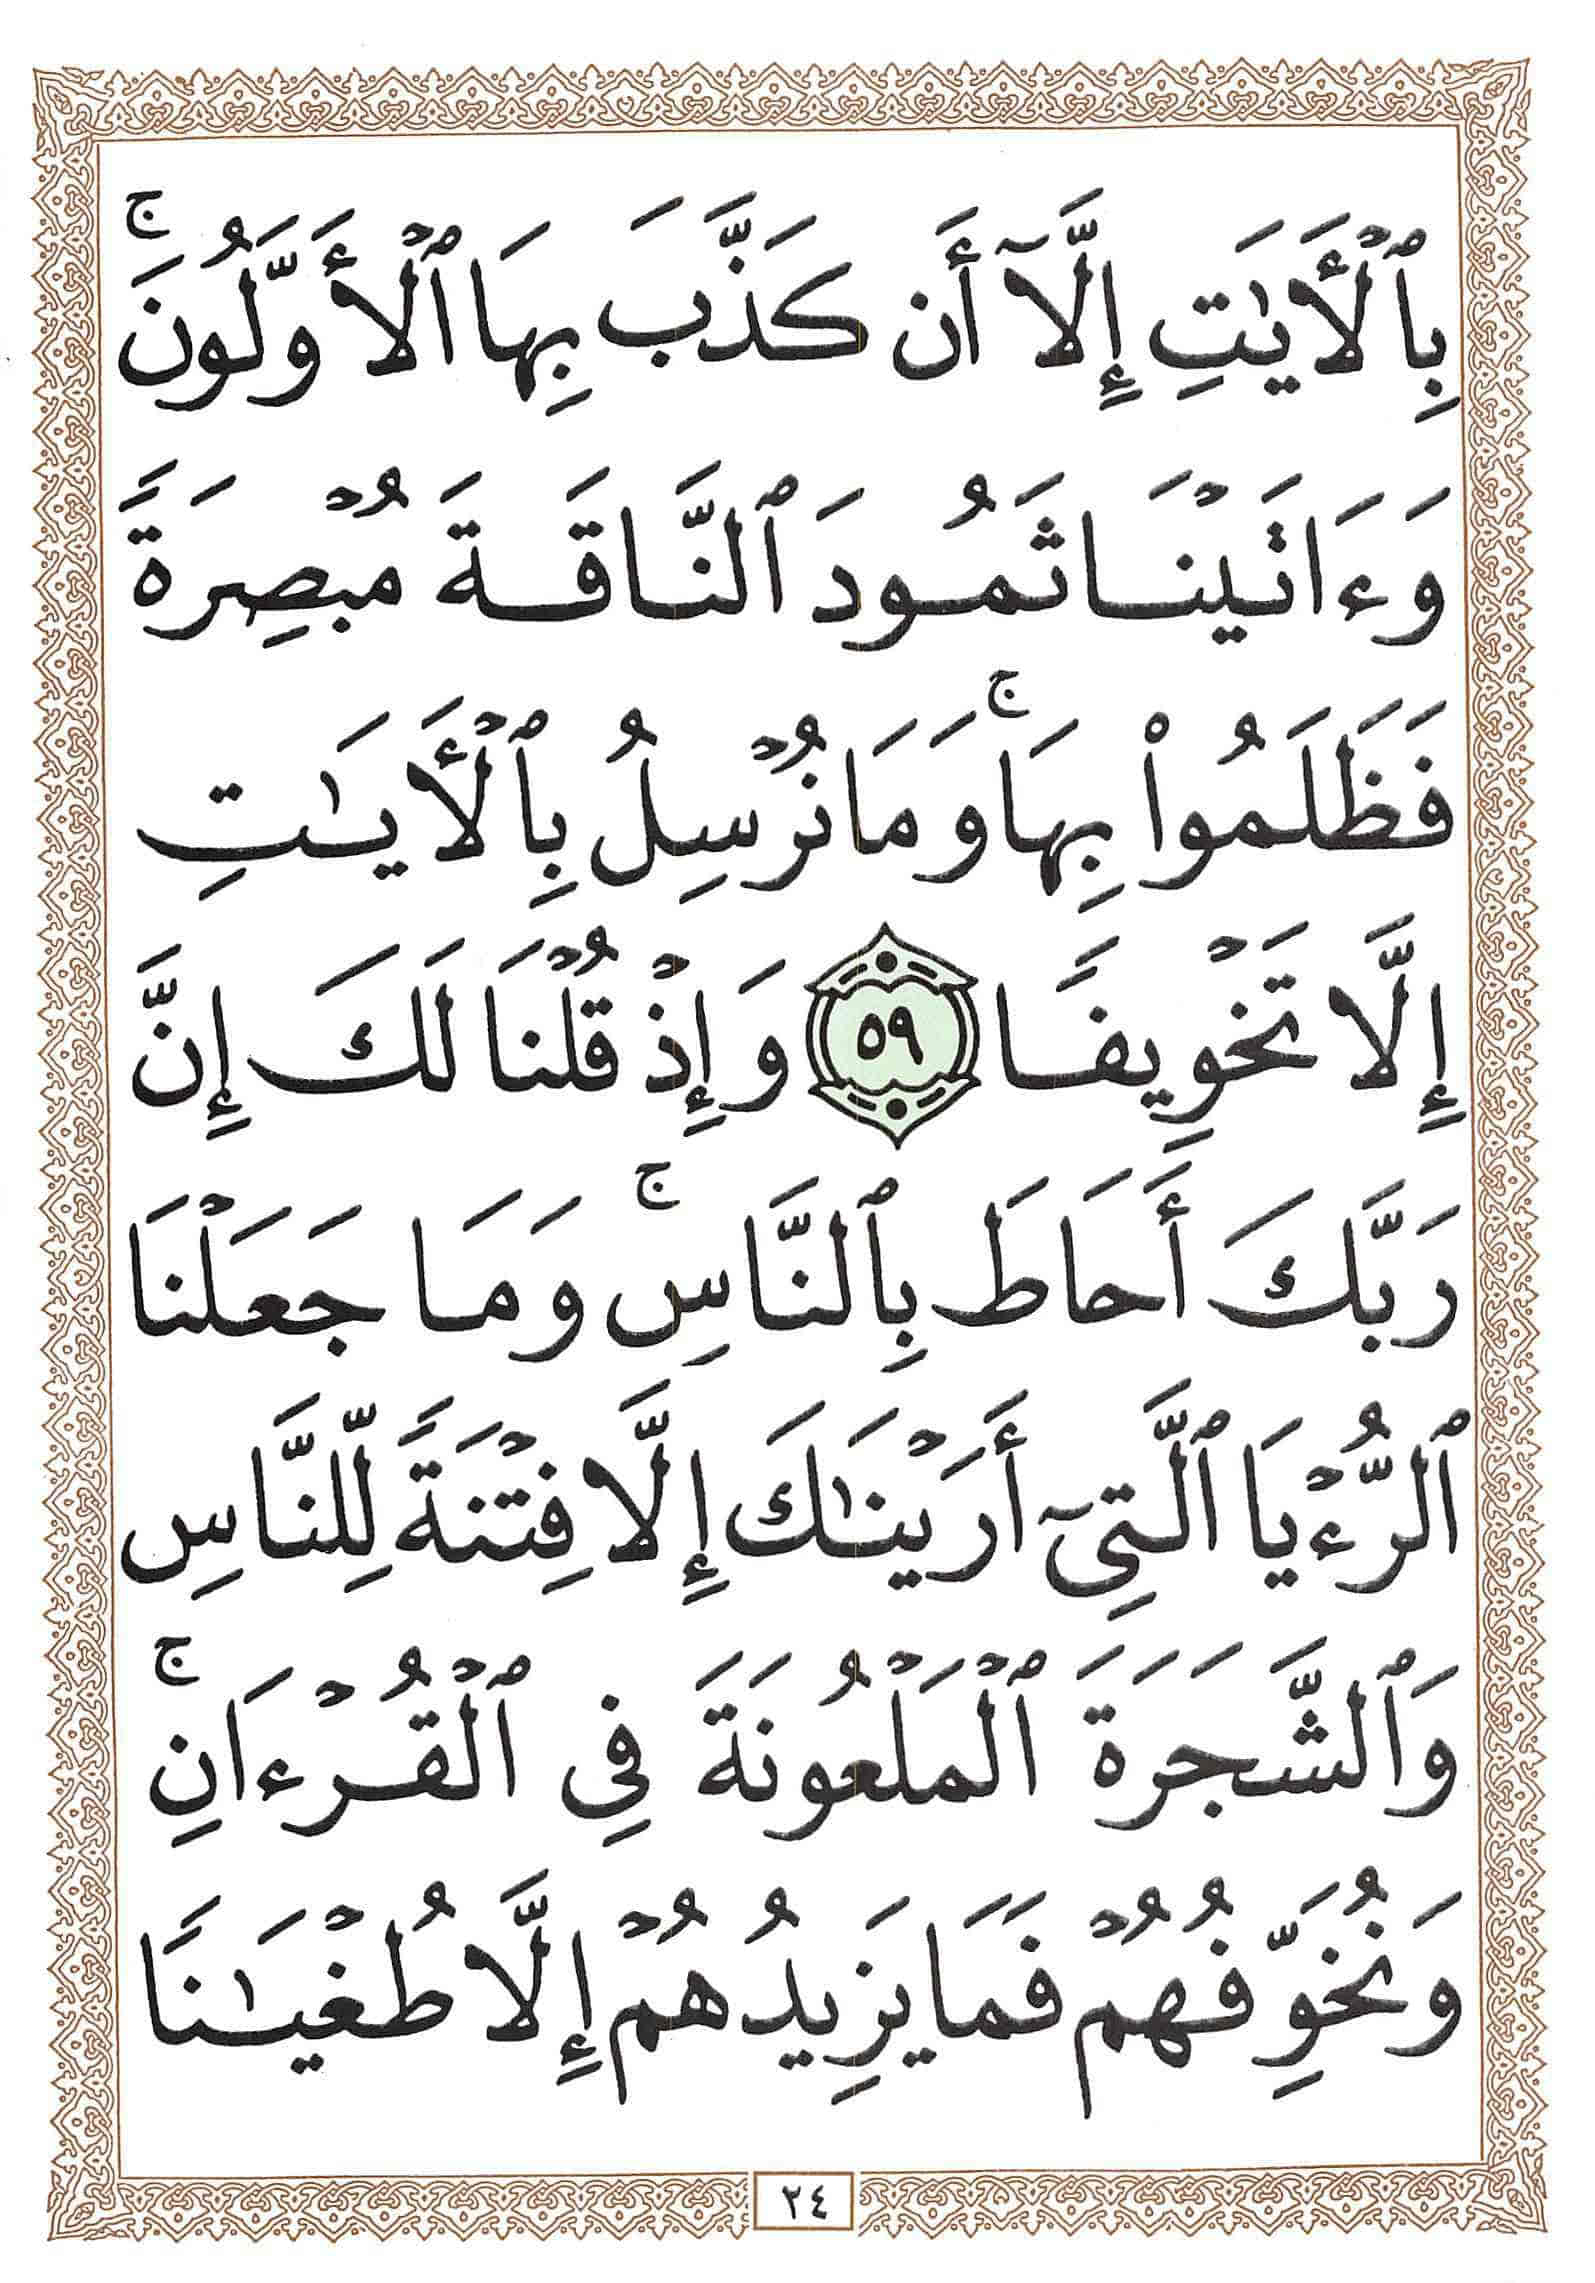 بِٱلْأَيَـٰتِ إِلَّآ أَن كَذَّبَ بِهَا ٱلْأَوَّلُونَ ۚ
وَءَاتَيْنَا ثَمُودَ ٱلنَّاقَةَ مُبْصِرَةً
فَظَلَمُوا۟ بِهَا ۚ وَمَا نُرْسِلُ بِٱلْأَيَـٰتِ
إِلَّا تَخْوِيفًا ٥٩ وَإِذْ قُلْنَا لَكَ إِنَّ
رَبَّكَ أَحَاطَ بِٱلنَّاسِ ۚ وَمَا جَعَلْنَا
ٱلرُّءْيَا ٱلَّتِىٓ أَرَيْنَـٰكَ إِلَّا فِتْنَةً لِّلنَّاسِ
وَٱلشَّجَرَةَ ٱلْمَلْعُونَةَ فِى ٱلْقُرْءَانِ ۚ
وَنُخَوِّفُهُمْ فَمَا يَزِيدُهُمْ إِلَّا طُغْيَـٰنًا
٢٤